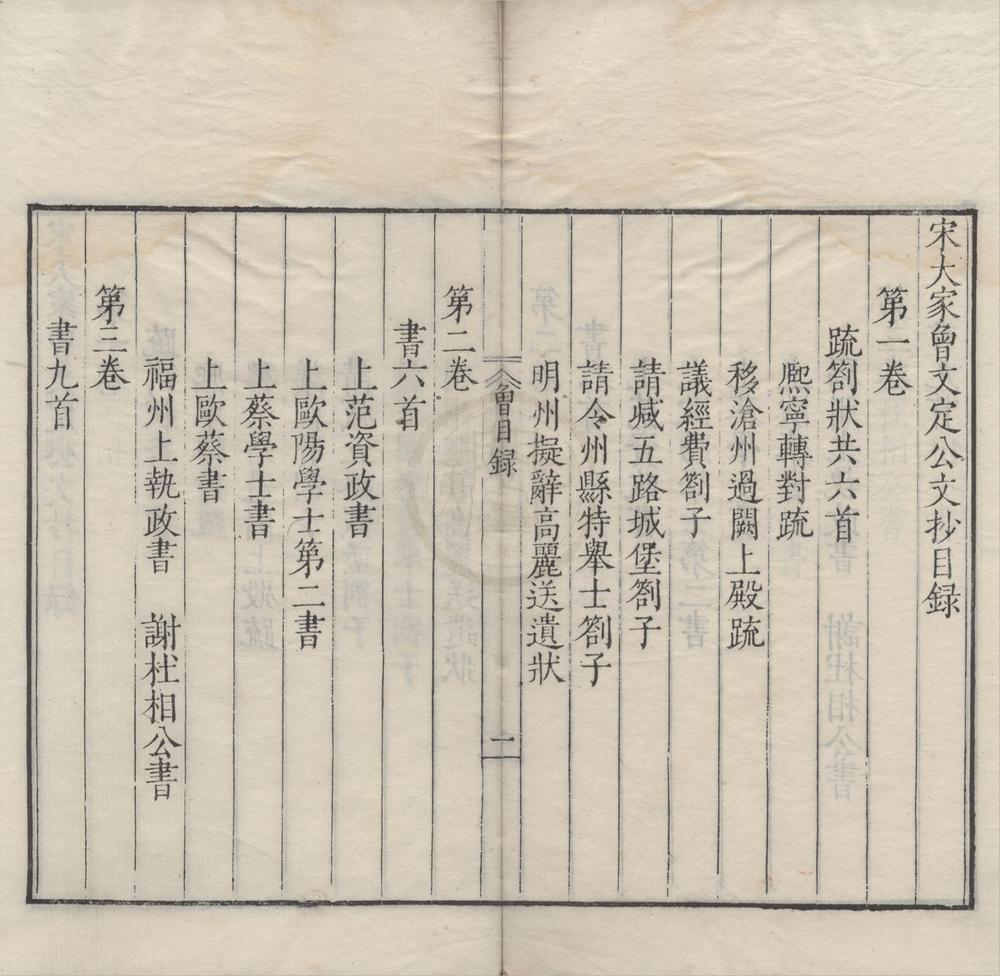 宋大家曾文定公文抄目録
第一卷
疏劄狀共六首
熈寧轉對疏
移滄州過闕上殿疏
議經費劄子
請减五路城堡劄子
請令州縣特舉士劄子
明州擬辭高麗送遺狀
曾目録
一
第二卷
書六首
上范資政書
上歐陽學士第二書
上蔡學士書
上歐蔡書
福州上執政書　謝杜相公書
第三卷
書九首